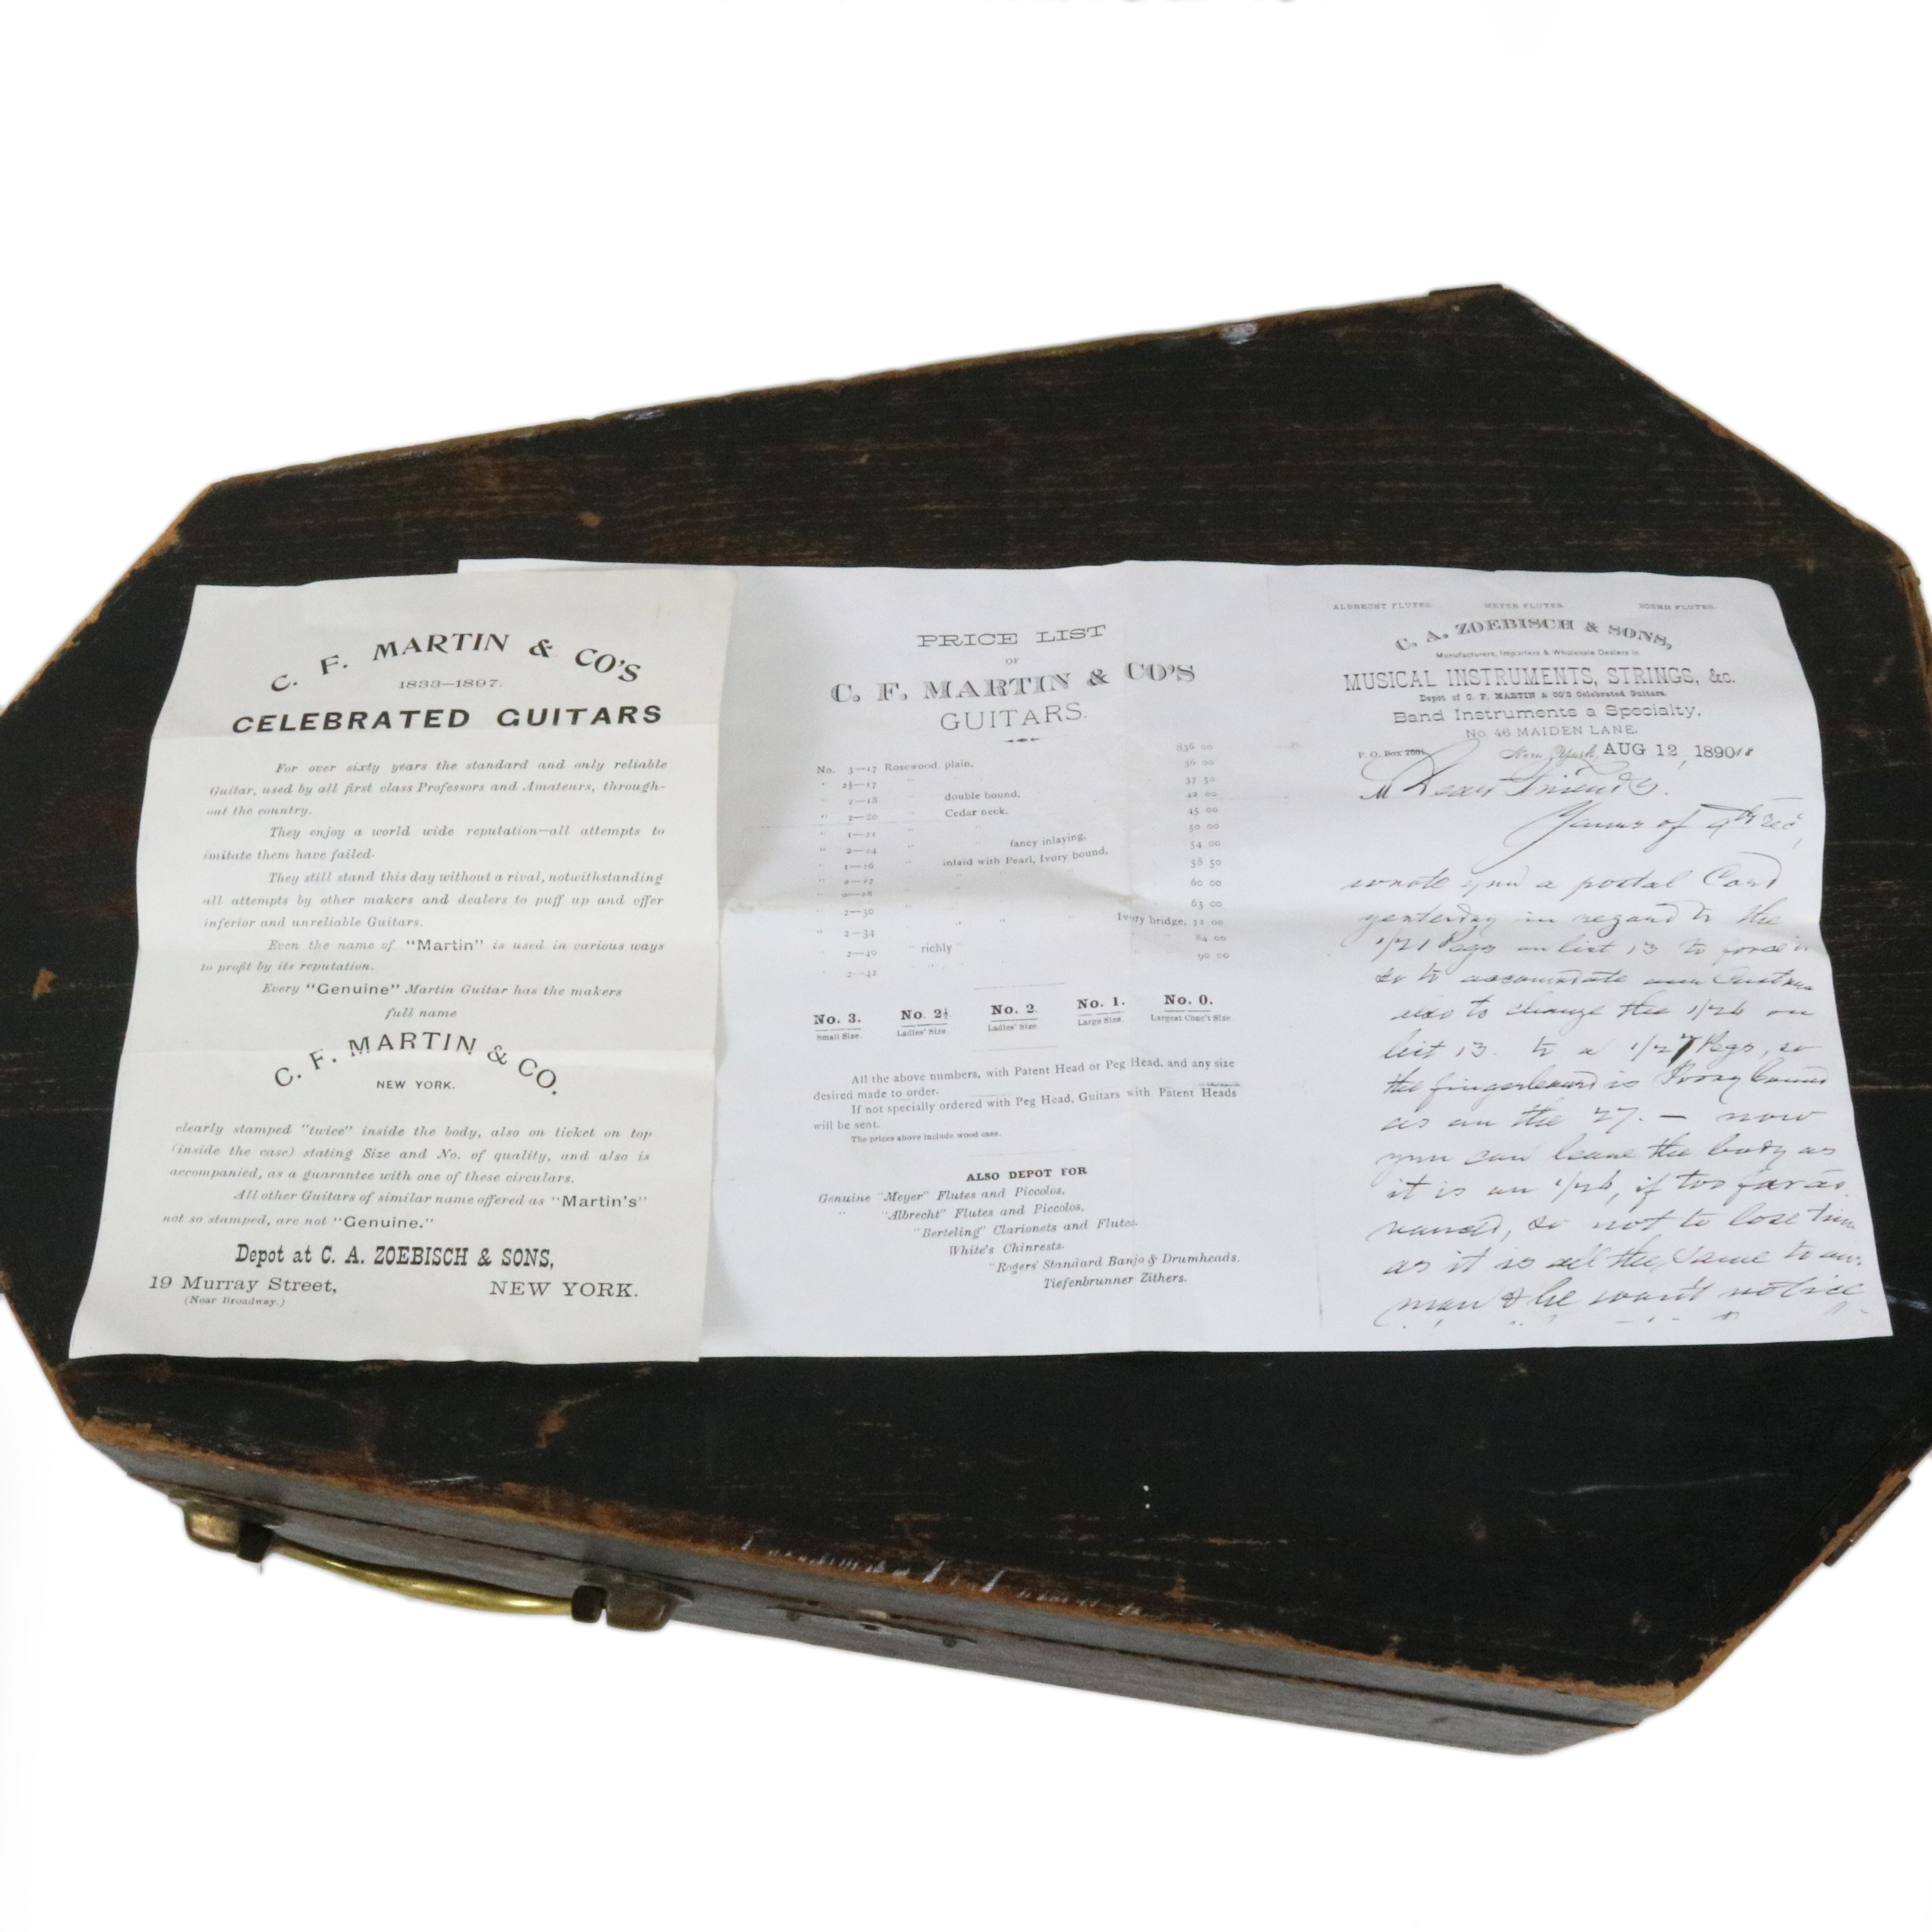 C. F. MARTIN & CO'S
1833—1897.
CELEBRATED GUITARS
For over sixty years the standard and only reliable
Guitar, used by all first class Professors and Amateurs, through-
out the country.
They enjoy a world wide reputation—all attempts to
imitate them have failed.
They still stand this day without a rival, notwithstanding
all attempts by other makers and dealers to puff up and offer
inferior and unreliable Guitars.
Even the name of "Martin" is used in various ways
to profit by its reputation.
Every "Genuine" Martin Guitar has the makers
full name
C. F. MARTIN & CO.
NEW YORK.
clearly stamped "twice" inside the body, also on ticket on top
(inside the case) stating Size and No. of quality, and also is
accompanied, as a guarantee with one of these circulars.
All other Guitars of similar name offered as "Martin's"
not so stamped, are not "Genuine."
Depot at C. A. ZOEBISCH & SONS,
19 Murray Street, NEW YORK.
(Near Broadway.)
PRICE LIST
OF
C. F. MARTIN & CO'S
GUITARS.
No. 3—17 Rosewood, plain, 36 00
" 2½—17 " 36 00
" 2—18 " double bound, 37 50
" 2—20 " Cedar neck, 42 00
" 1—21 " 45 00
" 2—24 " fancy inlaying, 50 00
" 1—26 inlaid with Pearl, Ivory bound, 54 00
2—27 58 50
0—28 60 00
2—30 63 00
" 2—34 Ivory bridge, 72 00
2—40 " richly 84 00
2—42 90 00
No. 3. No. 2½. No. 2. No. 1. No. 0.
Small Size. Ladies' Size. Ladies' Size. Large Size. Largest Conc't Size.
All the above numbers, with Patent Head or Peg Head, and any size
desired made to order.
If not specially ordered with Peg Head, Guitars with Patent Heads
will be sent.
The prices above include wood case.
ALSO DEPOT FOR
Genuine "Meyer" Flutes and Piccolos,
" "Albrecht" Flutes and Piccolos,
"Berteling" Clarionets and Flutes.
White's Chinrests.
"Rogers' Standard Banjo & Drumheads.
Tiefenbrunner Zithers.
ALBRECHT FLUTES. MEYER FLUTES. BOEHM FLUTES.
C. A. ZOEBISCH & SONS,
Manufacturers, Importers & Wholesale Dealers in
MUSICAL INSTRUMENTS, STRINGS, &c.
Depot of C. F. MARTIN & CO'S Celebrated Guitars.
Band Instruments a Specialty.
No. 46 MAIDEN LANE.
P. O. Box New York, AUG 12, 1890
Dear Friend
Yours of 9th rec'd,
wrote you a postal Card
yesterday in regard to the
1/21 Pegs on list 13 to
so to accomodate our
also to change the 1/26 on
list 13. to a 1/27 Pegs, so
the fingerboard is Ivory bound
as on the 27. — now
you can leave the body as
it is on 1/26, if too far ad
vanced, so not to lose time
as it is all the same to our
man & he won't notice